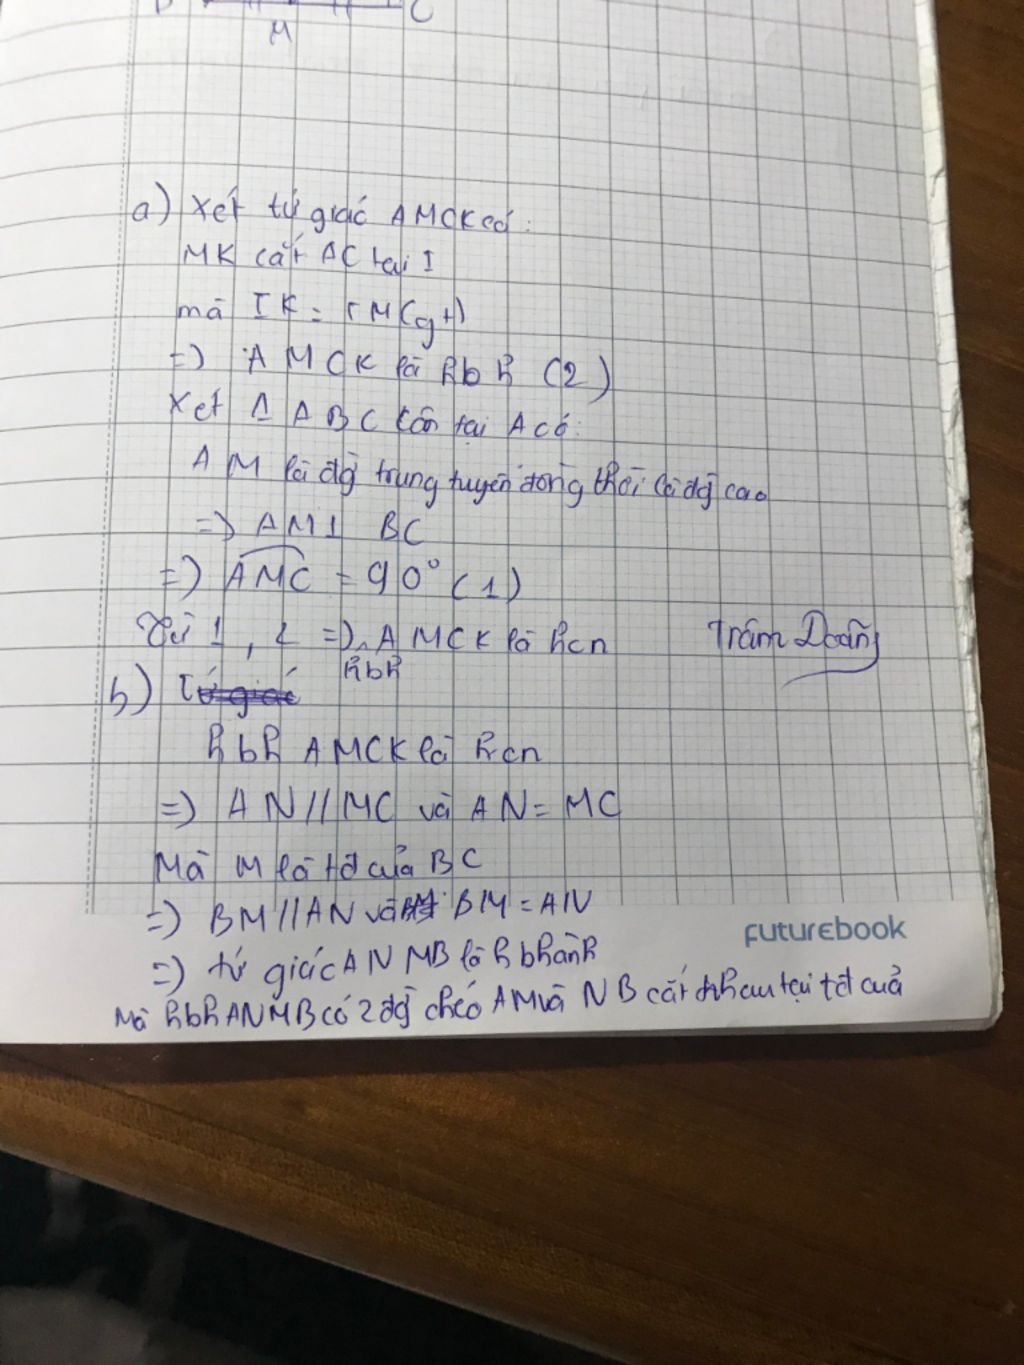 C
M
a) Xét tứ giác AMCK có:
MK cắt AC tại I
mà IK = IM (gt)
=) AMCK là hbh (2)
Xét Δ ABC cân tại A có:
AM là đg trung tuyến đồng thời là đg cao
=> AM ⊥ BC
=) AMC = 90° (1)
Từ 1, 2 =) AMCK là hcn
hbh
Trâm Doãn
b) Tứ giác
hbh AMCK là hcn
=) AN // MC và AN = MC
Mà M là tđ của BC
=) BM // AN và BM = AN
=) tứ giác AN MB là hbhành
Mà hbh ANMB có 2 đg chéo AM và NB cắt nhau tại tđ của
FUTUREBOOK